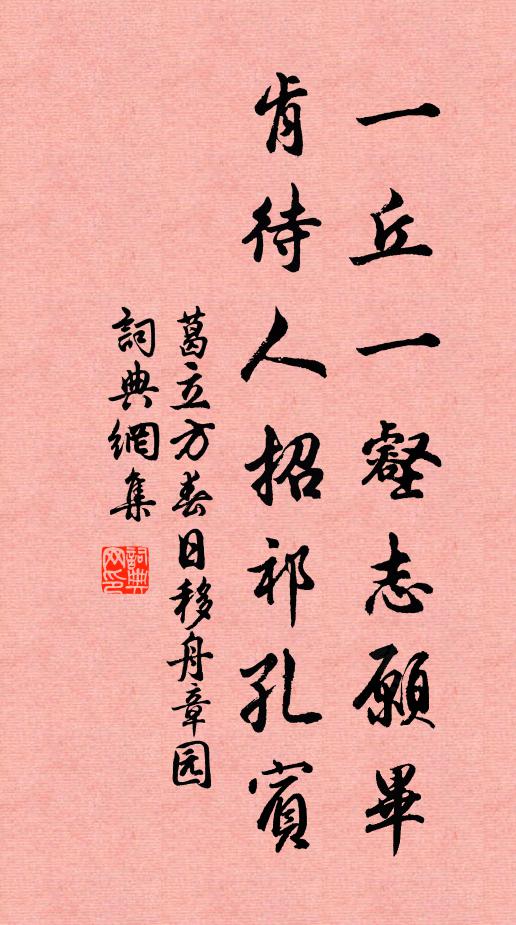 一丘一壑志願畢
肯待人招祁孔賓
葛立方春日移舟章园
詞典網集
詞典网印